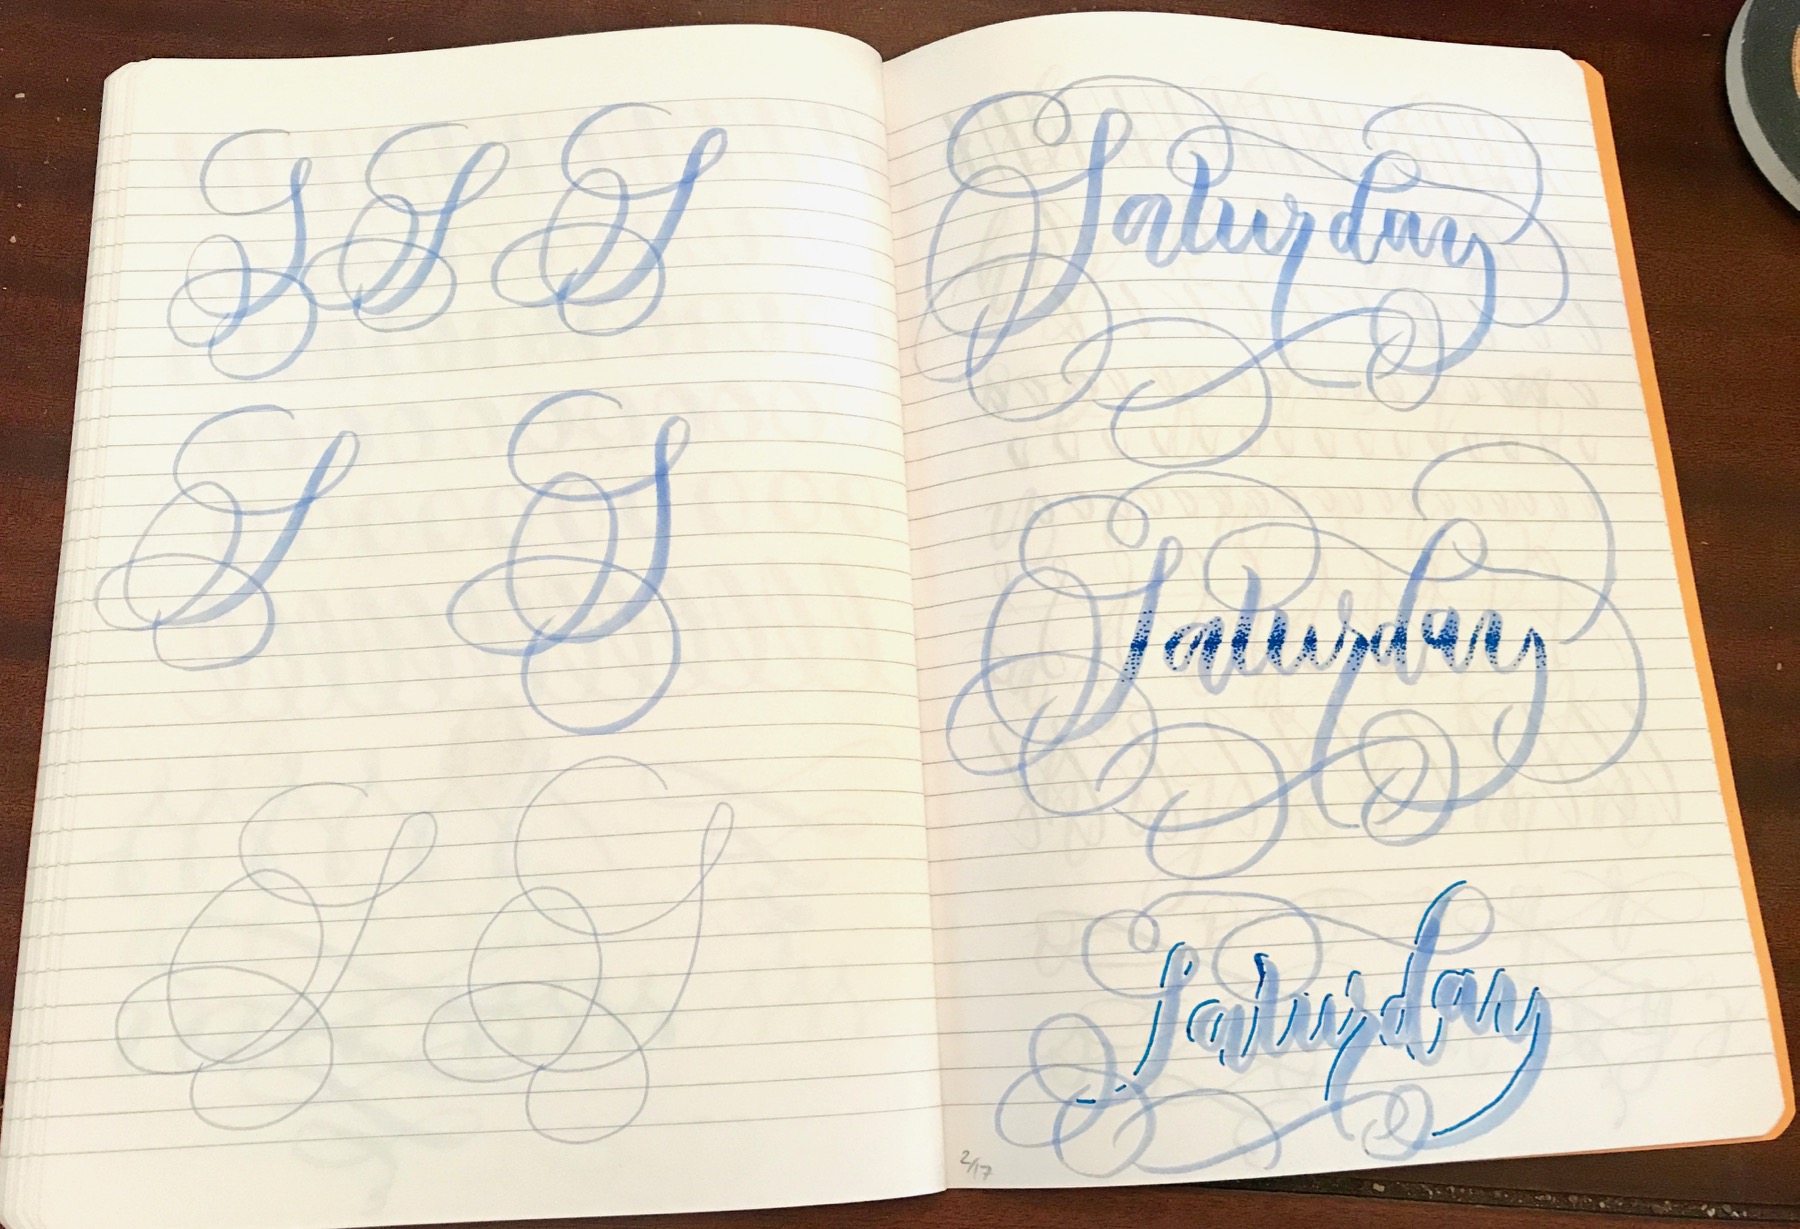 S S S
S S
S S
Saturday
Saturday
Saturday
2/17